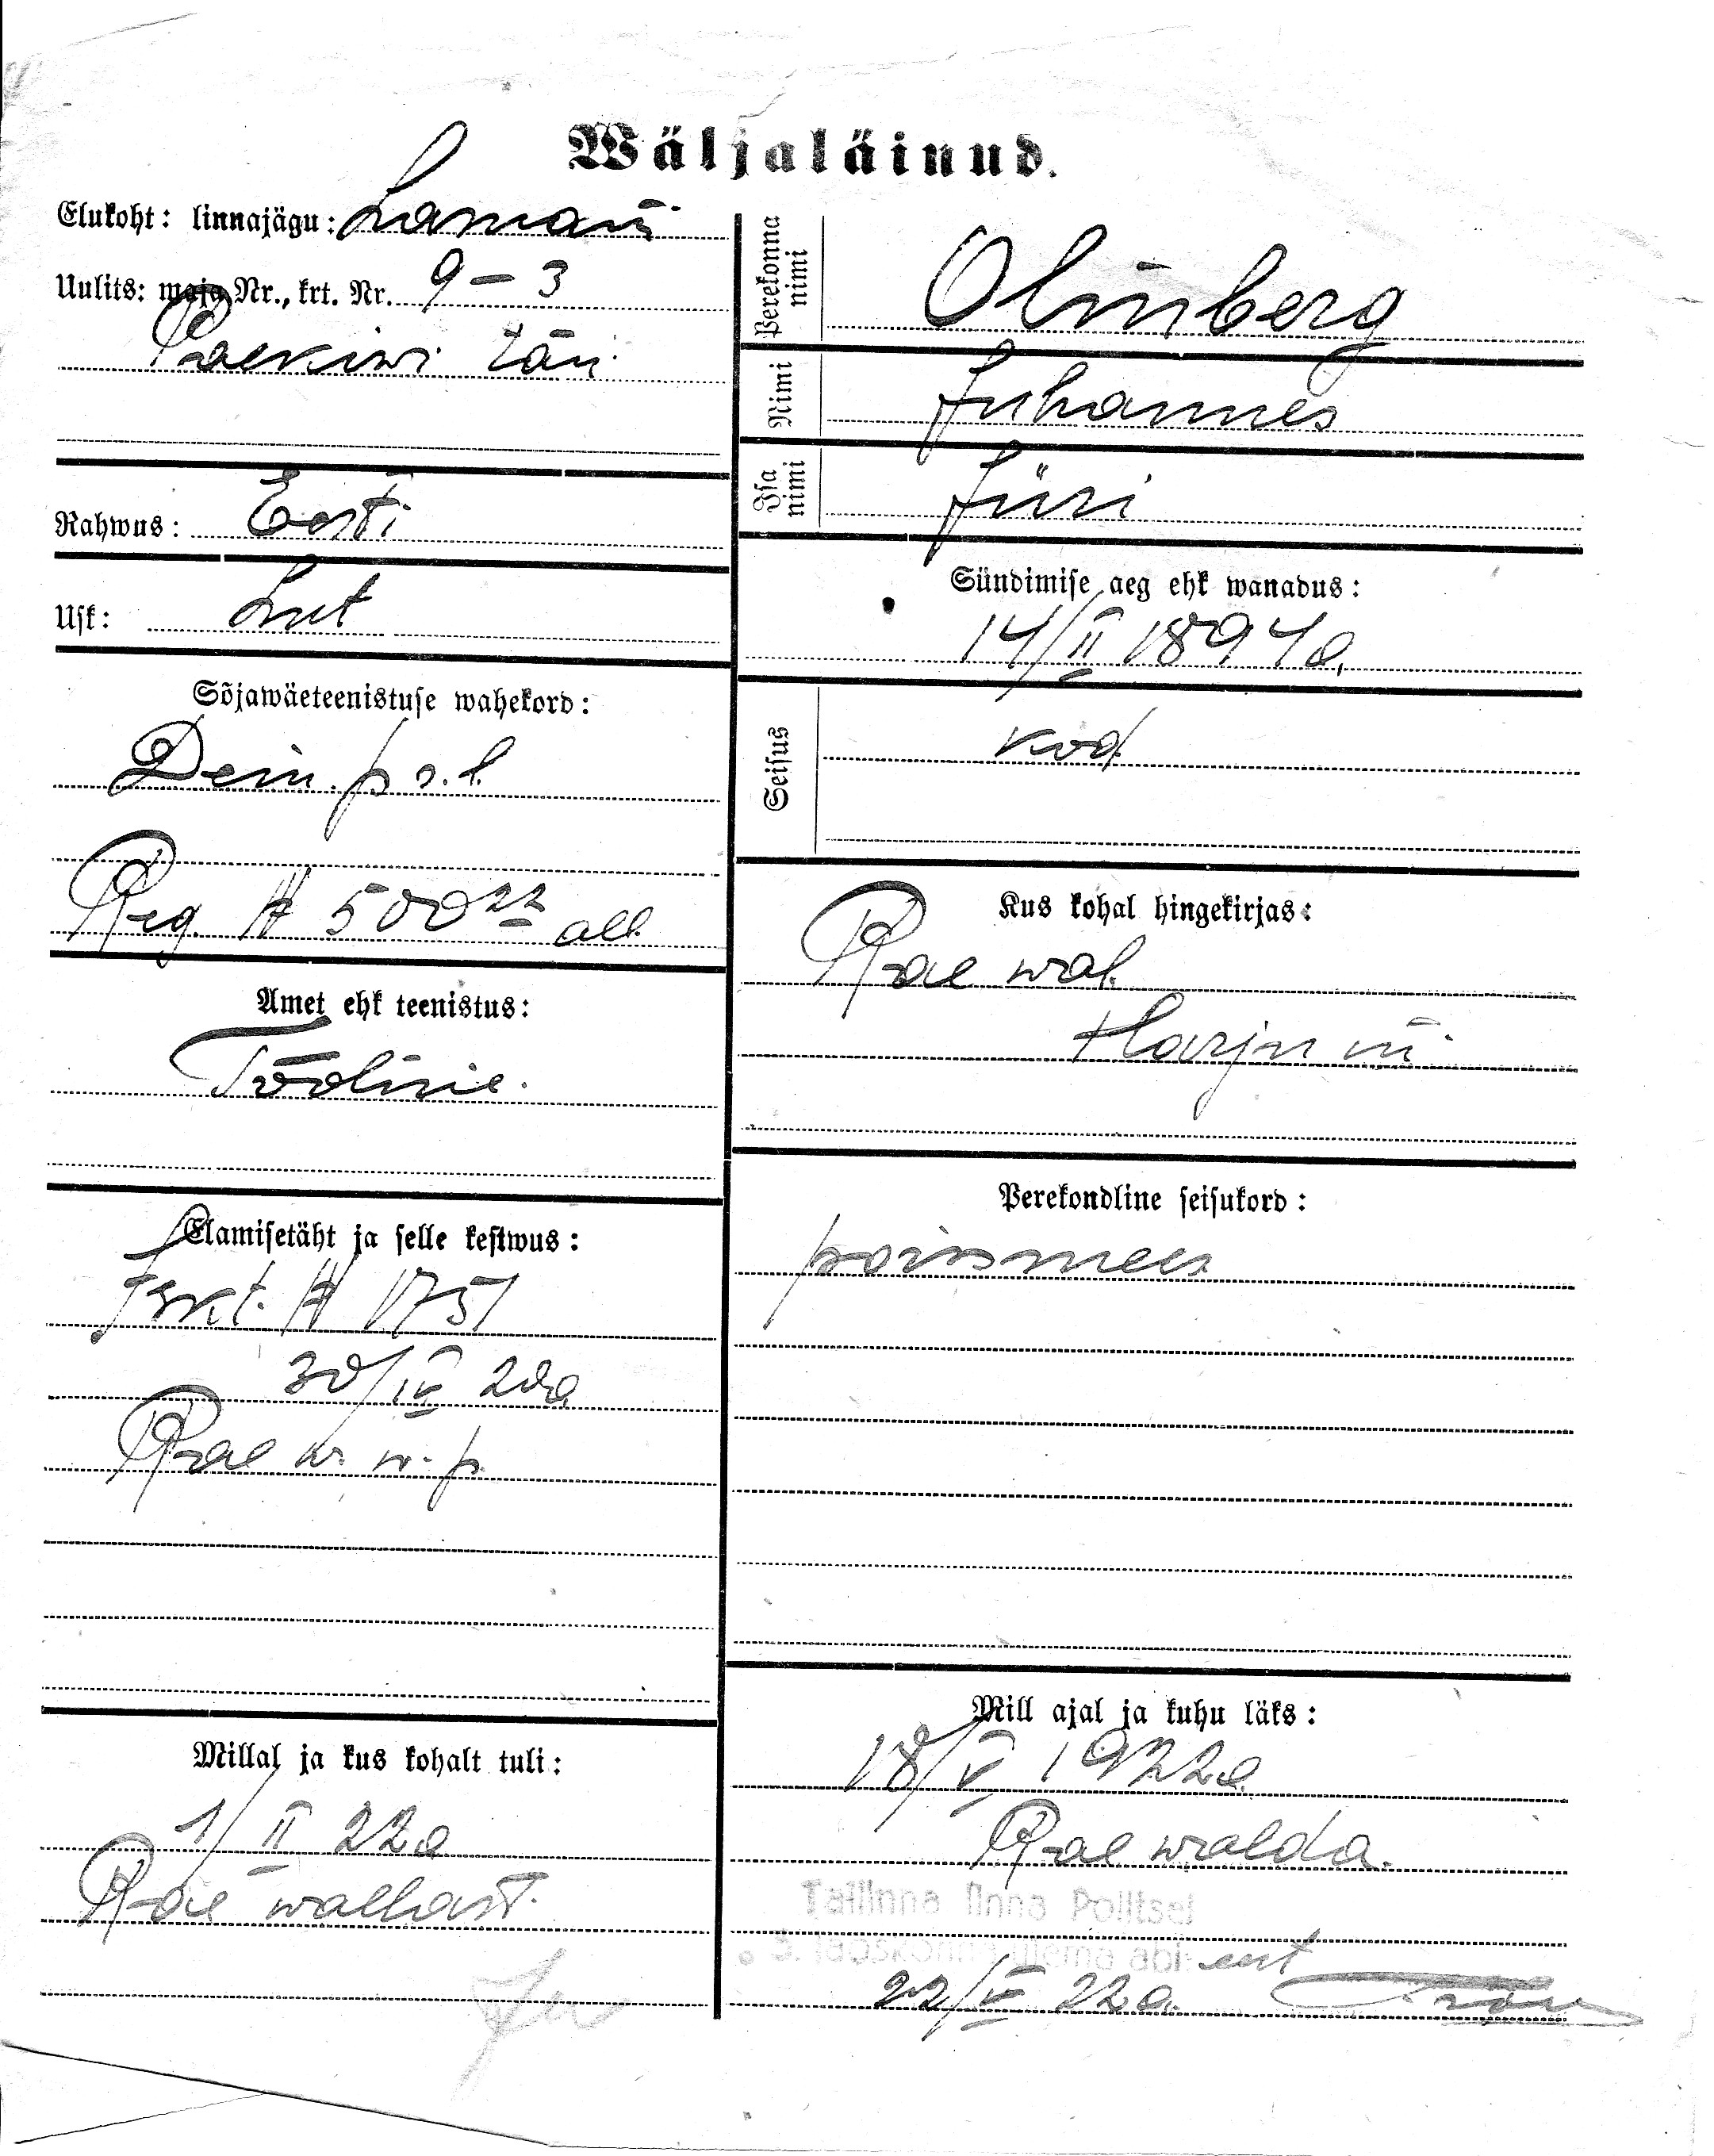 Wäljaläinud.
Elukoht: linnajägu: Lasnam.
Uulits: maja Nr., krt. Nr. 9 – 3
Paekiwi tän.
Rahwus: Eesti
Usk: Lut
Sõjawäeteenistuse wahekord:
Dem. p s. l.
Reg. № 500 22 all
Amet ehk teenistus:
Tööline.
Elamisetäht ja selle kestwus:
Iskt. № 1751
30/IV 20a
Rae w. w. p.
Millal ja kus kohalt tuli:
1/II 22a
Rae wallast.
Perekonna nimi
Olinberg
Nimi
Juhannes
Isa nimi
Jüri
Sündimise aeg ehk wanadus:
14/II 1894 a.
Seisus
kod.
Kus kohal hingekirjas:
Rae wal.
Harju m.
Perekondline seisukord:
poissmees
Mill ajal ja kuhu läks:
18/V 1922a
Rae walda.
Tallinna linna Politsei
3. jaoskonna ülema abi
22/V 22a.